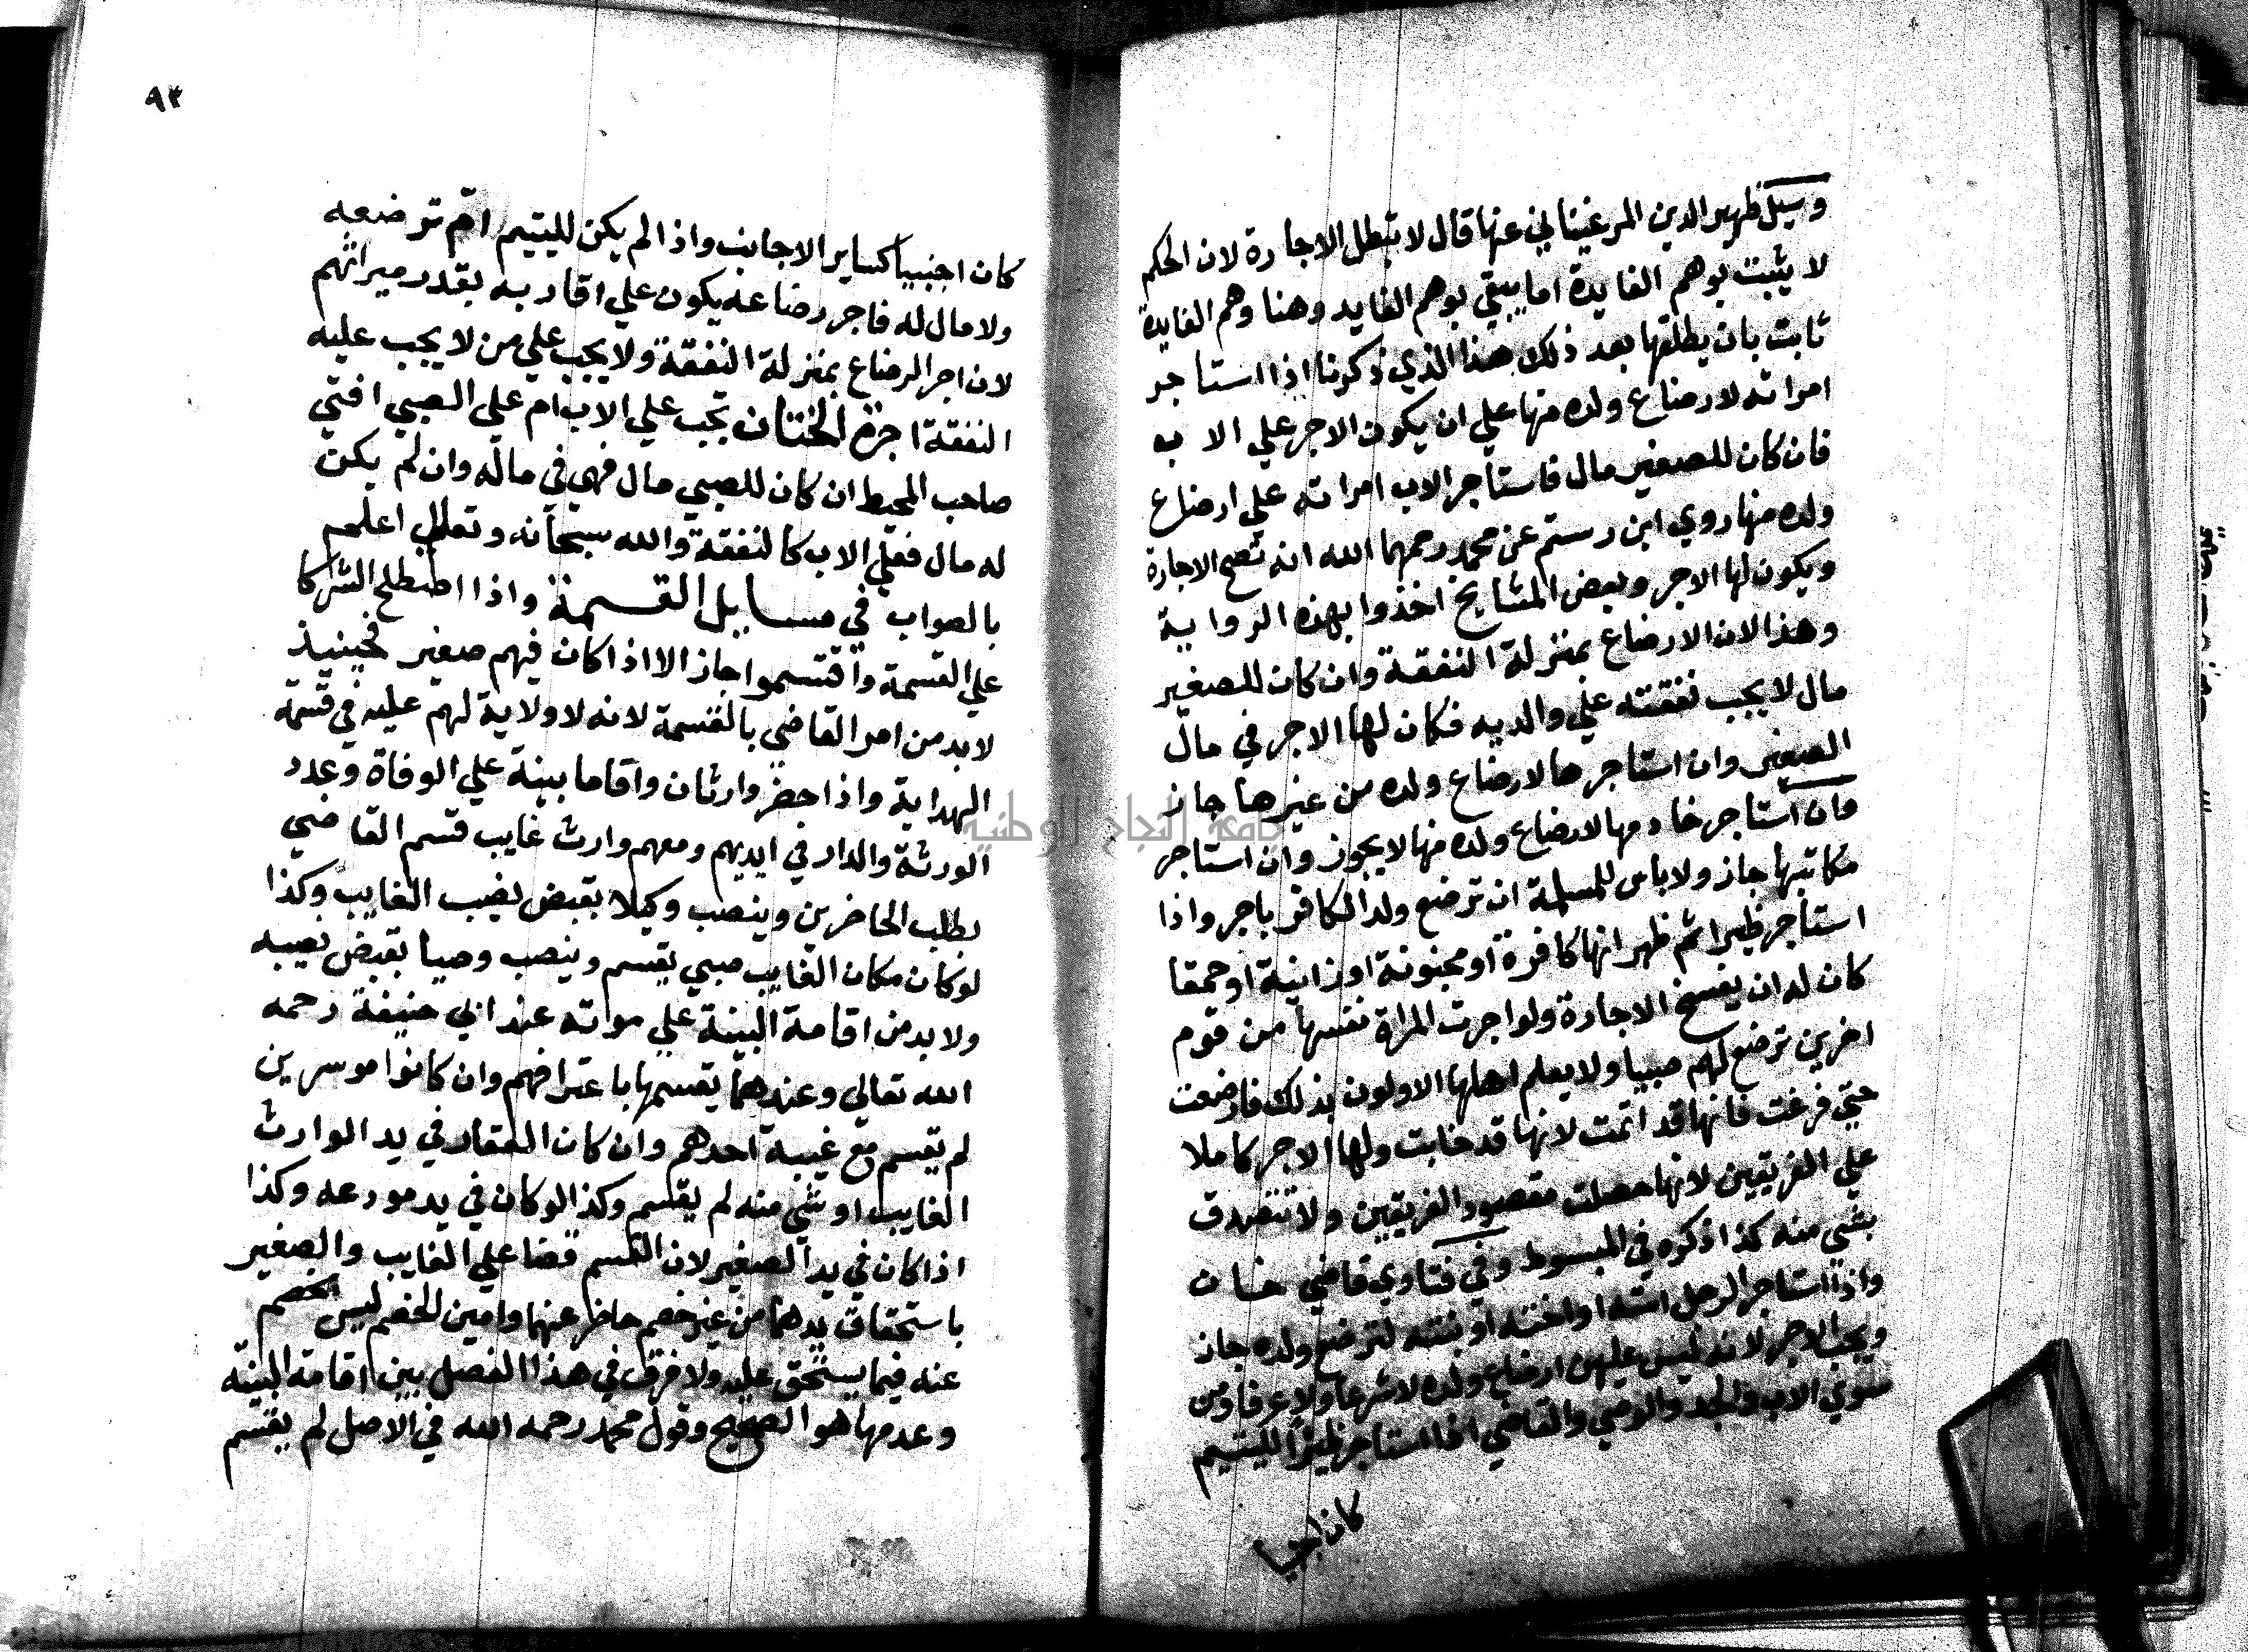 وسيل ظهير الدين المرغيناني عنها قال لا تبطل الاجارة لان الحكم
لا يثبت بوهم الفايدة اما يبقي بوهم الفايد وهنا وهم الفايدة
ثابت بان يطلقها بعد ذلك هذا الذي ذكرنا اذا استاجر
امراته لارضاع ولده منها علي ان يكون الاجر علي الاب
فان كان للصغير مال فاستاجر الاب امراته علي ارضاع
ولده منها روي ابن رستم عن محمد رحمهما الله انه تصح الاجارة
ويكون لها الاجر وبعض المشايخ اخذوا بهذه الرواية
وهذا لان الارضاع بمنزلة النفقة وان كان للصغير
مال لا يجب نفقته علي والديه فكان لها الاجر في مال
الصغير وان استاجرها لارضاع ولده من غيرها جاز
وان استاجر خادمها لارضاع ولده منها لا يجوز وان استاجر
مكاتبها جاز ولا باس للمسلمة ان ترضع ولد الكافر باجر واذا
استاجر ظيرا ثم ظهر انها كافرة او مجنونة او زانية او حمقا
كان له ان يفسخ الاجارة ولو اجرت المراة نفسها من قوم
اخرين ترضع لهم صبيا ولا يعلم اهلها الاولون بذلك فارضعت
حتي فرغت فانها قد اثمت لانها قد خانت ولها الاجر كاملا
علي الفريقين لانها حصلت مقصود الفريقين ولا تتصدق
بشي منه كذا ذكره في المبسوط وفي فتاوي قاضي خان
واذا استاجر الرجل امته او اخته او بنته لترضع ولده جاز
ويجب الاجر لانه ليس عليهن ارضاع ولده لا شرعا ولا عرفا ومن
سوي الاب والجد والوصي والقاضي اذا استاجر ظيرا لليتيم
كان اجنبيا
٩٣
كان اجنبيا كساير الاجانب واذا لم يكن لليتيم ام ترضعه
ولا مال له فاجر رضاعه يكون علي اقاربه بقدر ميراثهم
لان اجر الرضاع بمنزلة النفقة ولا يجب علي من لا يجب عليه
النفقة اجرة الختان تجب علي الاب ام علي الصبي افتي
صاحب المحيط ان كان للصبي مال فهي في ماله وان لم يكن
له مال فعلي الاب كالنفقة والله سبحانه وتعالي اعلم
بالصواب في مسايل القسمة واذا اصطلح الشركا
علي القسمة واقتسموا جاز الا اذا كان فيهم صغير فحينيذ
لا بد من امر القاضي بالقسمة لانه لا ولاية لهم عليه في قسمة
الهداية واذا حضر وارثان واقاما بينة علي الوفاة وعدد
الورثة والدار في ايديهم ومعهم وارث غايب قسم القاضي
بطلب الحاضرين وينصب وكيلا بقبض نصيب الغايب وكذا
لو كان مكان الغايب صبي يقسم وينصب وصيا بقبض نصيبه
ولا بد من اقامة البينة علي موته عند ابي حنيفة رحمه
الله تعالي وعندهما يقسمها باعترافهم وان كانوا موسرين
لم يقسم مع غيبة احدهم وان كان العقار في يد الوارث
الغايب او شي منه لم يقسم وكذا لو كان في يد مودعه وكذا
اذا كان في يد الصغير لان القسم قضا علي الغايب والصغير
باستحقاق يدهما من غير خصم حاضر عنهما وامين الخصم ليس بخصم
عنه فيما يستحق عليه ولا فرق في هذا الفصل بين اقامة البينة
وعدمها هو الصحيح وقول محمد رحمه الله في الاصل لم يقسم
جامعة النجاح الوطنية